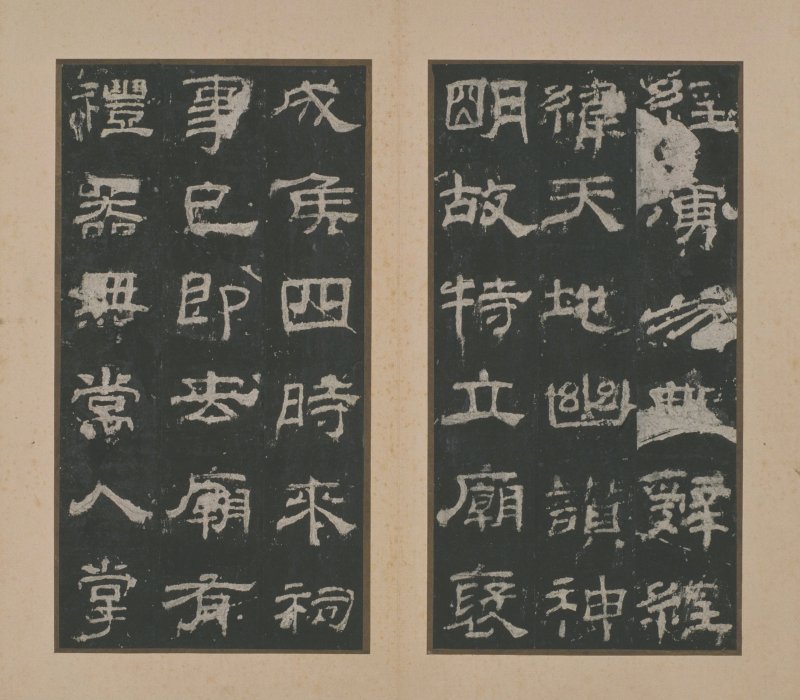 經演易辭經
緯天地幽讚神
明故特立廟褒
成侯四時來祠
事已即去廟有
禮器無常人掌